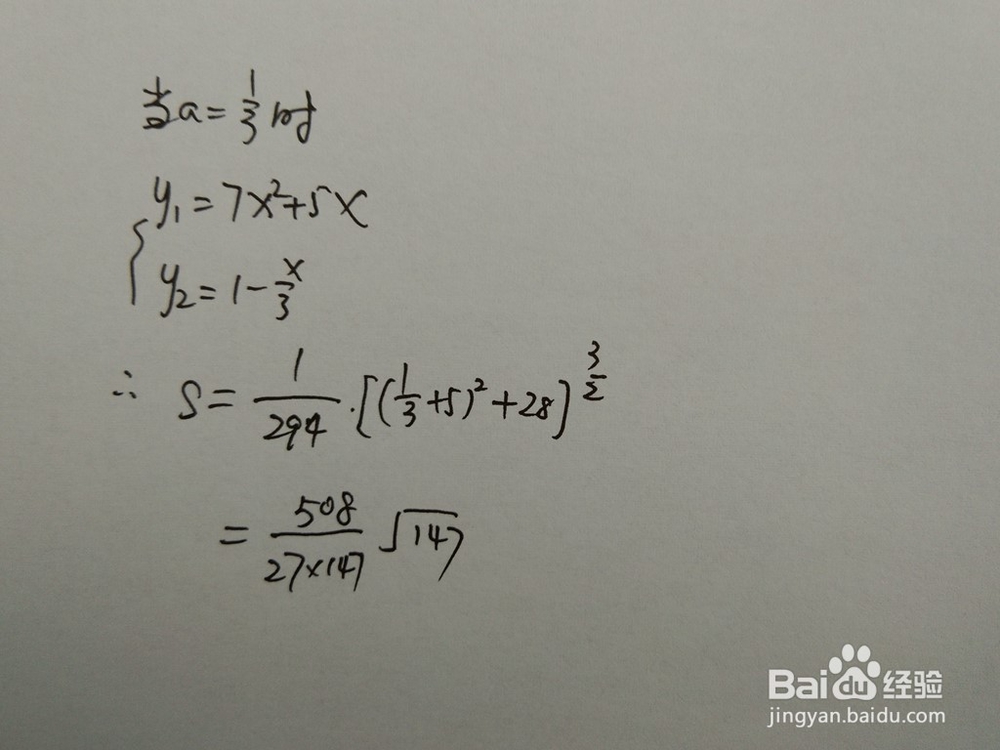 当a=1/3时
y₁=7x²+5x
y₂=1-x/3
∴ S=1/294·[(1/3+5)²+28]^(3/2)
=508/(27×147)√147
Baidu经验
jingyan.baidu.com